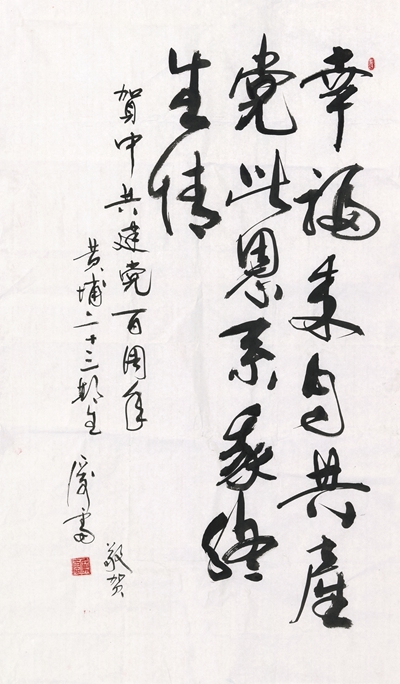 幸福来自共產
党此恩系我终
生情
賀中共建党百周年
黄埔二十三期生
敬贺